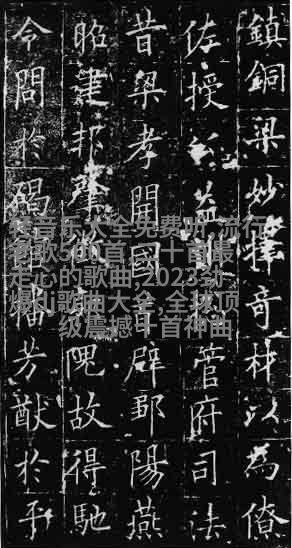 鎮銅梁妙擇奇材以為僚
佐授益管府司法
昔梁孝開國首辟鄒陽燕
昭建邦肇徵郭隗故得馳
令問於碣館播芳猷於平
音乐大全免费听,流行
老歌500首,十首最
走心的歌曲,2023劲
爆dj歌曲大全,全球顶
级震撼十首神曲